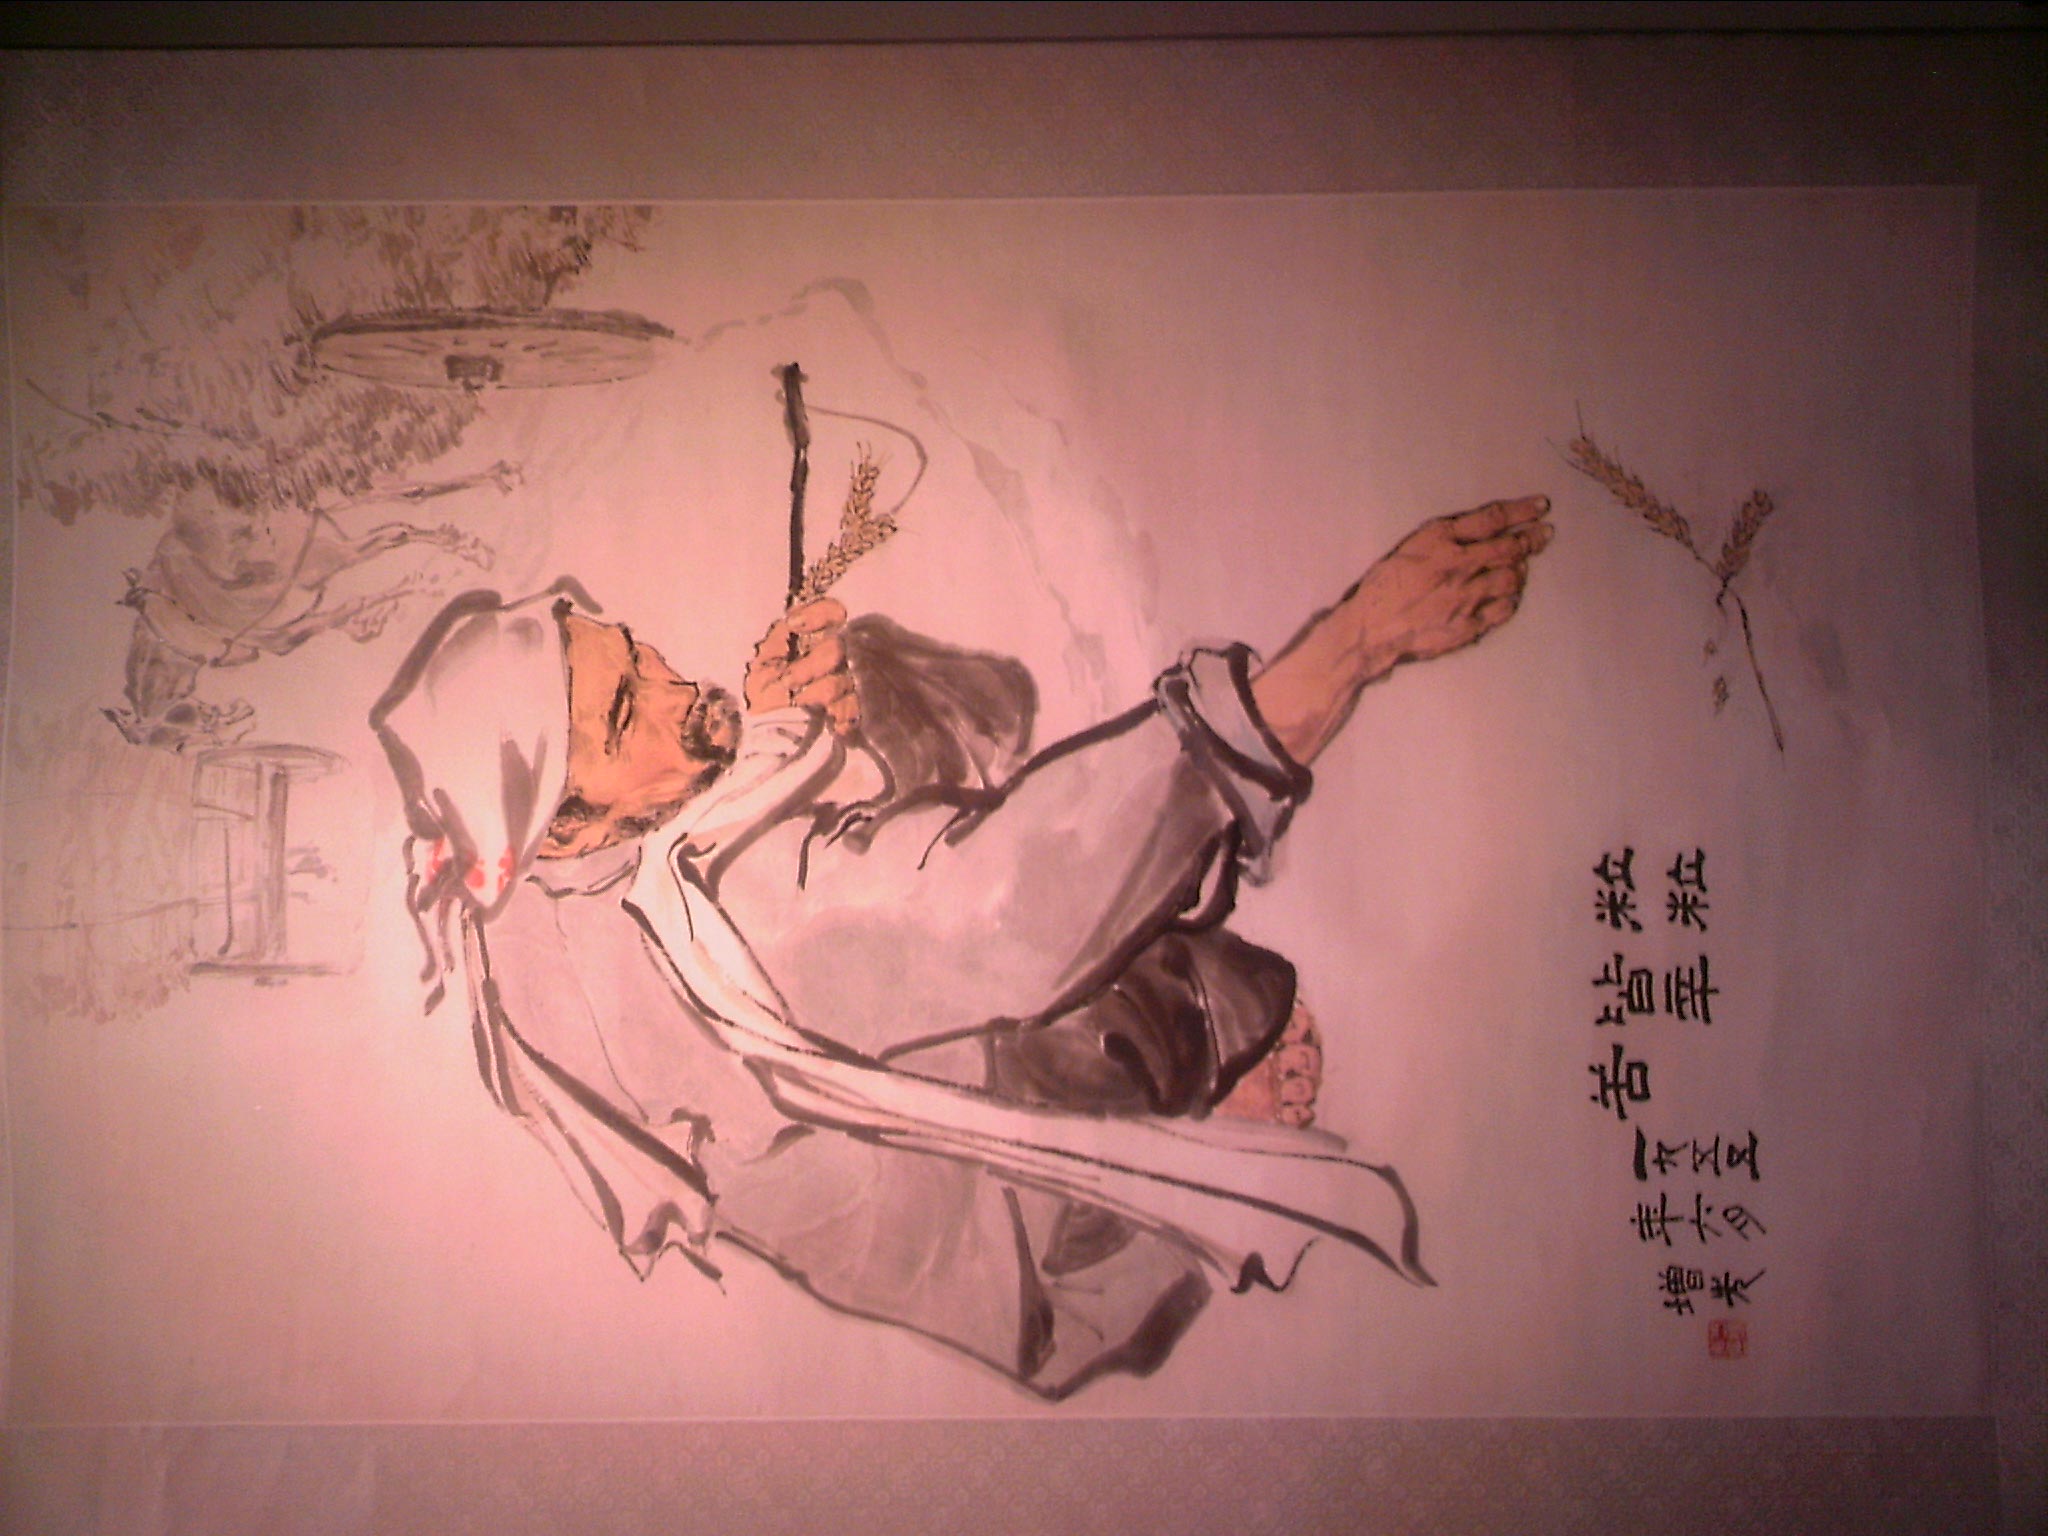 粒粒
皆辛
苦
一九五五
年六月
增先